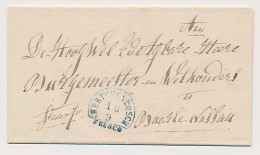 Aan
De Hoog Wel Ed Achtbare Heere
Burgemeester en Wethouders
te
Franco
'S HERTOGENBOSCH
18
9
FRANCO
Baarle-Nassau